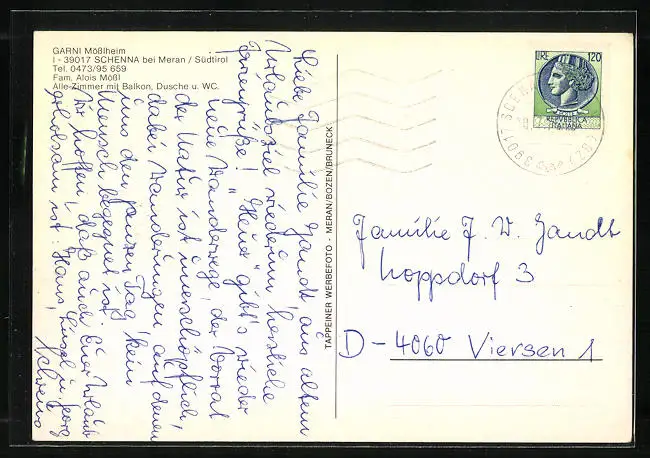 GARNI Mößlheim
I - 39017 SCHENNA bei Meran / Südtirol
Tel. 0473/95 659
Fam. Alois Mößl
Alle Zimmer mit Balkon, Dusche u. WC.
Liebe Familie Jandt, aus altem
Urlaubsziel wiederum herzliche
Feriengrüße! "Heut" gibt's wieder
neue Wanderwege, der Vorrat
der Natur ist unerschöpflich,
dabei Wanderungen auf denen
uns den ganzen Tag kein
Mensch begegnet ist.
Wir hoffen, daß auch Euer Urlaub
erholsam ist. Hans, Liesel u. Georg
TAPPEINER WERBEFOTO - MERAN/BOZEN/BRUNECK
LIRE 120
REPVBBLICA
ITALIANA
Familie J. W. Jandt
Loppdorf 3
D - 4060 Viersen 1